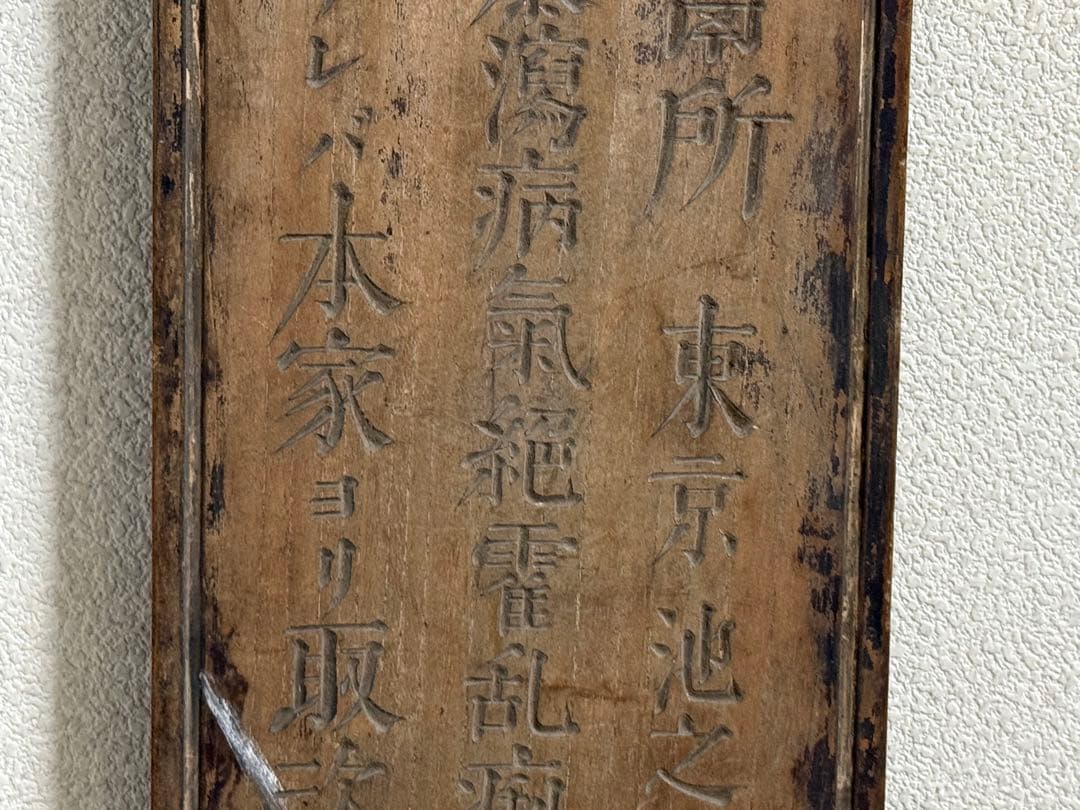 所 東京池之
瀉病氣絶霍乱
レバ本家ヨリ取